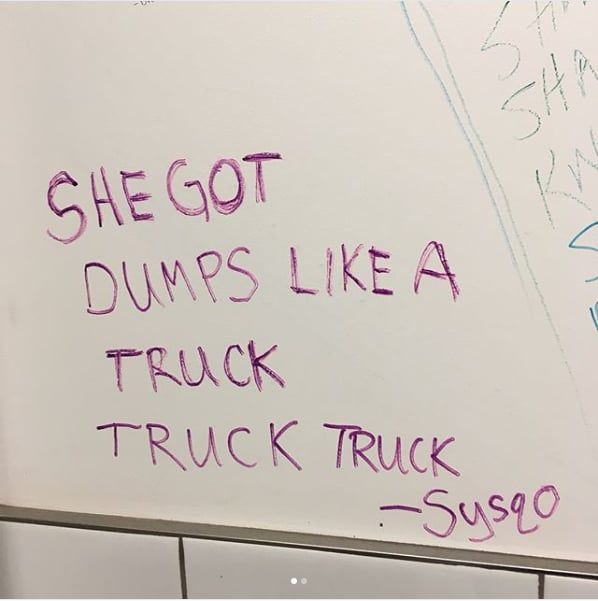 SHE GOT
DUMPS LIKE A
TRUCK
TRUCK TRUCK
-Sysqo